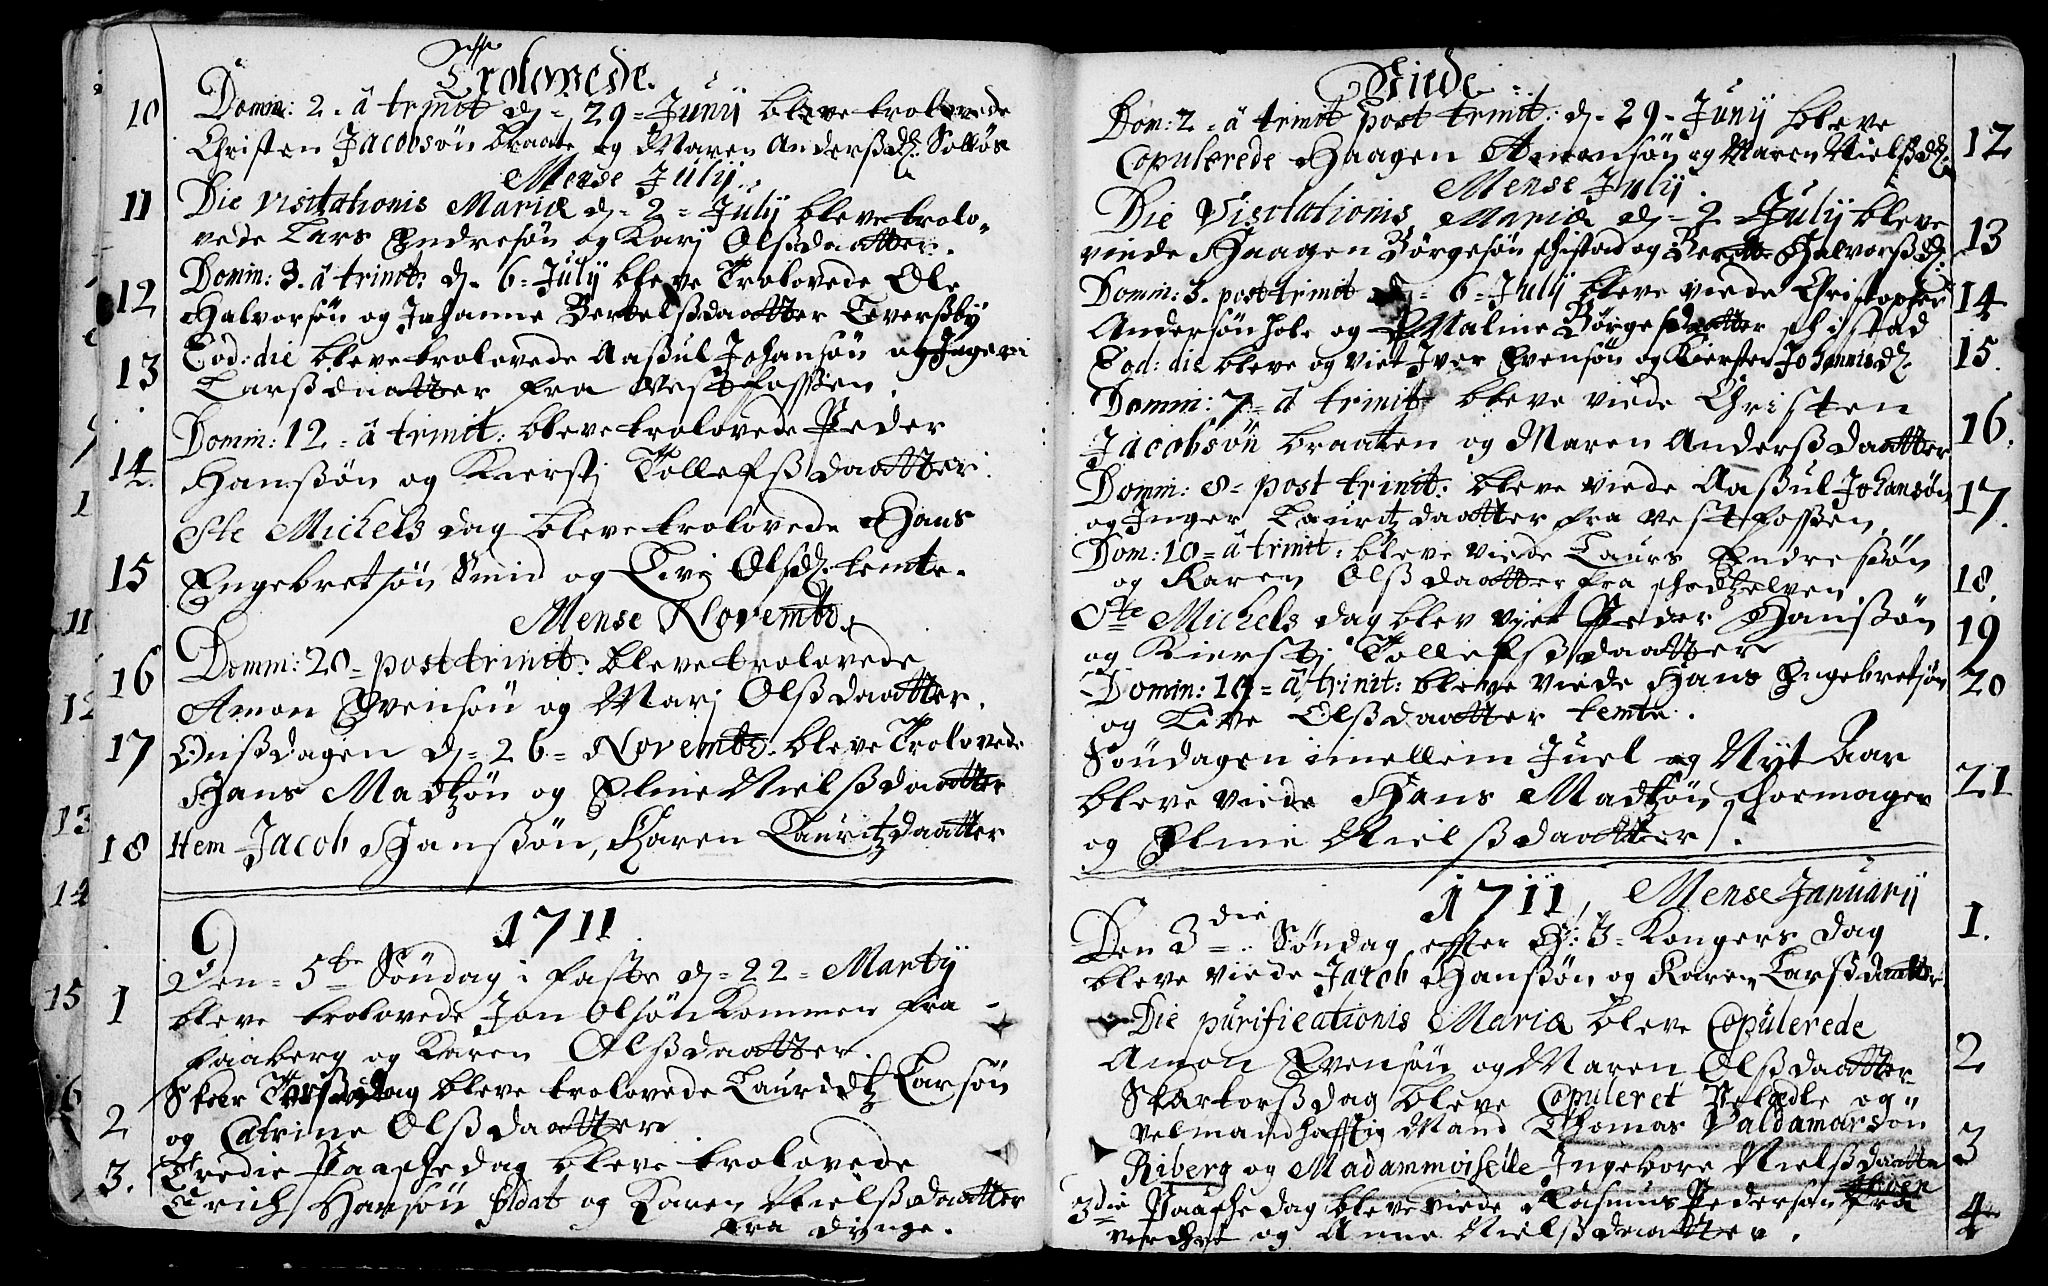 Trolovede.
10 Domin: 2. â trinit dn 29 = Junij bleve trolovede
Christen Jacobsøn Braate og Maren Andersßdr: Solløs
Mense Julij
11 Die Visitationis Mariæ dn 2 = Julij bleve trolo-
vede Lars Endresøn og Kari Olsßdaatter.
12 Domin: 3. â trinit: dn 6 = Julij bleve Trolovede Ole
Halvorsøn og Johanne Bertelsßdaatter Teverßby
13 Eod: die bleve trolovede Aaßul Johansøn og Ingeri
Larsßdaatter fra Vestfossen.
14. Domin: 12 = â trinit: bleve trolovede Peder
Hanßøn og Kiersti Tollefsßdaatter.
Ste Michels dag bleve trolovede Hans
15 Engebretsøn Smid og Live Olsdr. temte.
Mense Novembr.
16 Domin: 20 = post trinit: bleve trolovede
Amon Evensøn og Mari Olsßdaatter.
17 Onsßdagen dn 26 = Novembr. bleve Trolovede
Hans Madtzøn og Eline Nielsßdaatter
18 Item Jacob Hanßøn, Karen Lauritzdaatter
1711
1 Den = 5te Søndag i faste dn 22 = Martij
bleve trolovede Jon Olsøn Kommen fra
faaberg og Karen Olsßdaatter.
2 Skier Torßdag bleve trolovede Lauridtz Larsøn
og Catrine Olsßdaatter
3. Tredie Paaschedag bleve trolovede
Erich Hansøn soldat og Karen Nielsßdaatter
fra dynge.
Viede
Dom: 2 = â trinit post trinit: dn 29 = Junij bleve
Copulerede Haagen Amonsøn og Maren Nielsßdr. 12
Mense Julij.
Die Visitationis Mariæ dn 2 = Julij bleve
viede Haagen Børgesøn schistad og Berette Halvorsßdr: 13
Domin: 3. post trinit dn 6 = Julij bleve viede Christopher 14
Andersøn hole og Maline Børgesdaatter schistad
Eod: die bleve og viet Iver Evensøn og Kiersten Johannisdr. 15.
Domin: 7 = â trinit bleve viede Christen
Jacobsøn braaten og Maren Andersßdaatter 16.
Domin: 8 = post trinit: bleve viede Aaßul Johansøn 17.
og Inger Lauritzdaatter fra Vestfossen.
Dom: 10 = â trinit: bleve viede Laurs Endresøn
og Karen Olsßdaatter fra schodtzelven 18.
Ste Michels dag blev vjet Peder Hanßøn 19
og Kiersti Tollefsßdaatter
Domin: 19 = â trinit: bleve viede Hans Engebretsøn 20
og Live Olsßdaatter temte.
Søndagen imellem Juel og Nyt Aar
bleve viede Hans Madtzøn schomager 21
og Eline Nielsßdaatter.
1711, Mense Januarij
Den 3die Søndag efter H: 3 = Kongers dag 1.
bleve viede Jacob Hanßøn og Karen Larsßdaatter
Die purificationis Mariæ bleve Copulerede
Amon Evensøn og Maren Olsßdaatter 2
Skærtorsßdag bleve Copuleret Velædle og
velmandhafftig Mand Thomas Valdamarsøn 3
Riberg og Madammoiselle Ingebore Nielsßdaatter
3die Paasche dag bleve viede Rasmus Pedersøn fra 4
og Anne Nielsßdaatter.